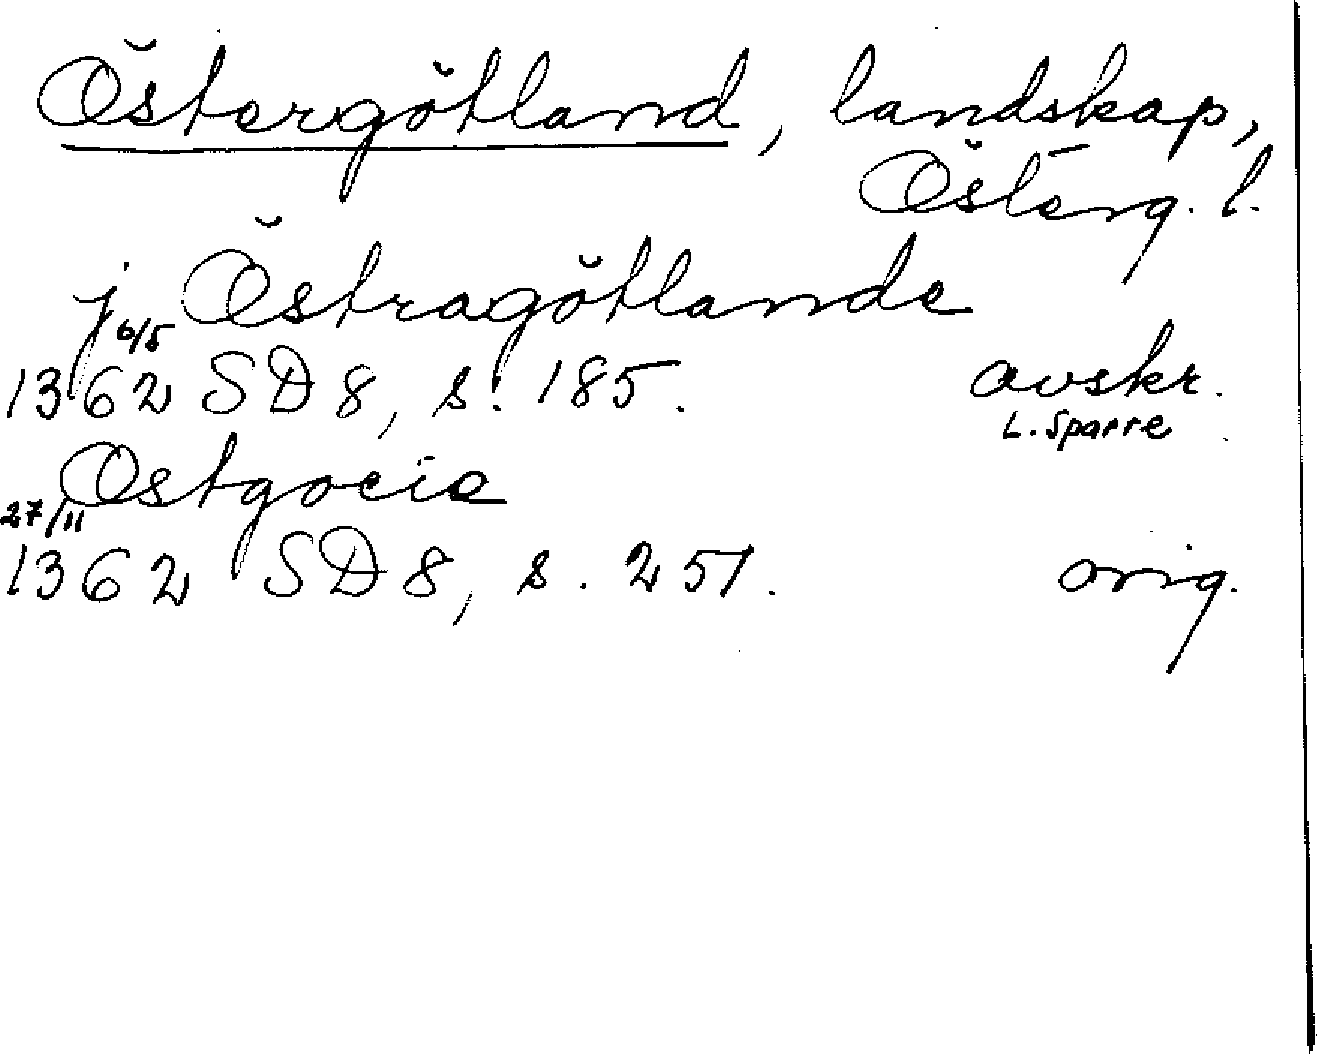 Östergötland, landskap,
Österg. l.
j Östragötlande
6/5
1362 SD 8, s. 185. avskr.
L. Sparre
Ostgocie
27/11
1362 SD 8, s. 251. orig.